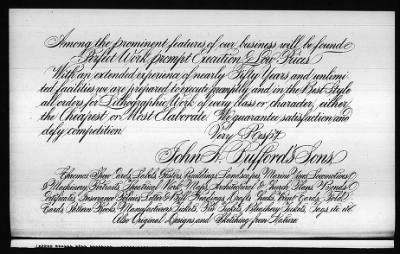 Among the prominent features of our business will be found
Perfect Work, prompt Execution & Low Prices
With an extended experience of nearly Fifty Years and unlimi-
ted facilities we are prepared to execute promptly and in the Best Style
all orders for Lithographic Work of every class or character, either
the Cheapest or Most Elaborate. We guarantee satisfaction and
defy competition.
Very Resp'y
John H. Bufford's Sons
Chromos, Show Cards, Labels, Posters, Buildings, Landscapes, Marine Views, Locomotives
& Machinery, Portraits, Theatrical Work, Maps, Architectural & Plans, Bonds
Certificates, Insurance Policies, Letter & Bill Headings, Drafts, Checks, Print Cards, Fold
Cards, Pattern Books, Manufacturers Tickets, Pin Tickets, Tickets, Tags &c &c
Also Original Designs and Sketching from Nature